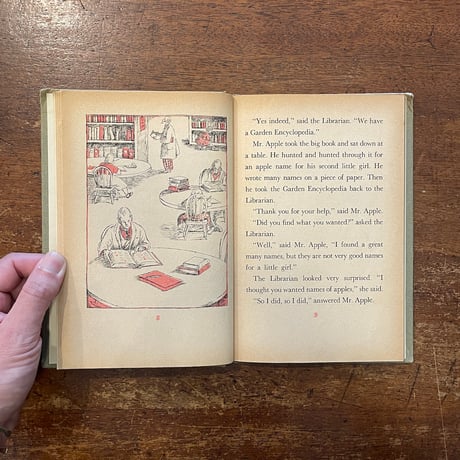 8
"Yes indeed," said the Librarian. "We have
a Garden Encyclopedia."
Mr. Apple took the big book and sat down at
a table. He hunted and hunted through it for
an apple name for his second little girl. He
wrote many names on a piece of paper. Then
he took the Garden Encyclopedia back to the
Librarian.
"Thank you for your help," said Mr. Apple.
"Did you find what you wanted?" asked the
Librarian.
"Well," said Mr. Apple, "I found a great
many names, but they are not very good names
for a little girl."
The Librarian looked very surprised. "I
thought you wanted names of apples," she said.
"So I did, so I did," answered Mr. Apple.
9